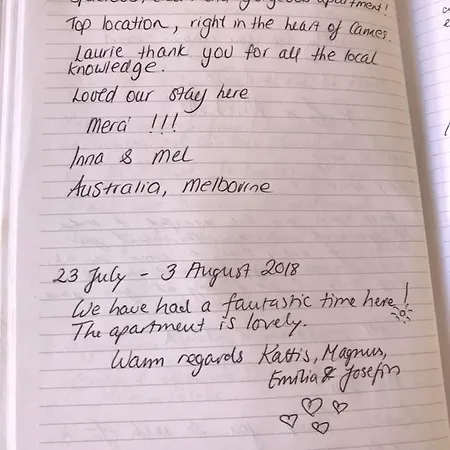 apartment!
Top location, right in the heart of Cannes.
Laurie thank you for all the local
knowledge.
Loved our stay here
Merci !!!
Inna & Mel
Australia, Melbourne
23 July - 3 August 2018
We have had a fantastic time here!
The apartment is lovely.
Warm regards Kattis, Magnus,
Emilia & Josefin